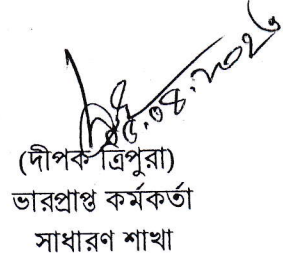 ১৫.০৪.২০২৬
(দীপক ত্রিপুরা)
ভারপ্রাপ্ত কর্মকর্তা
সাধারণ শাখা